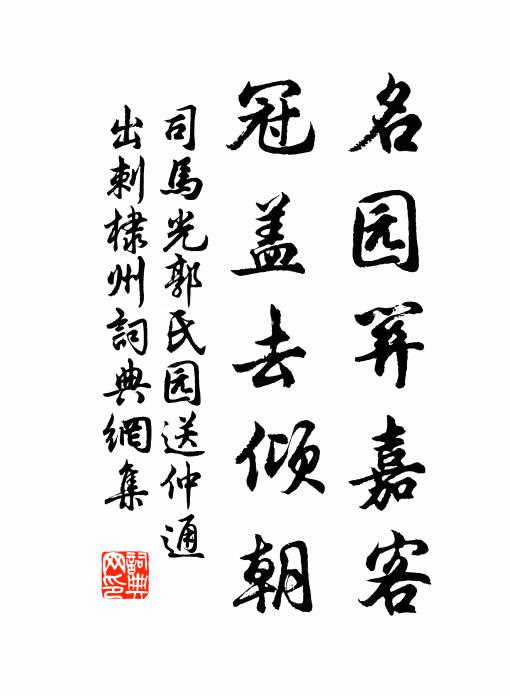 名园開嘉客
冠盖去倾朝
司馬光郭氏园送仲通
出刺棣州詞典網集
詞典网印